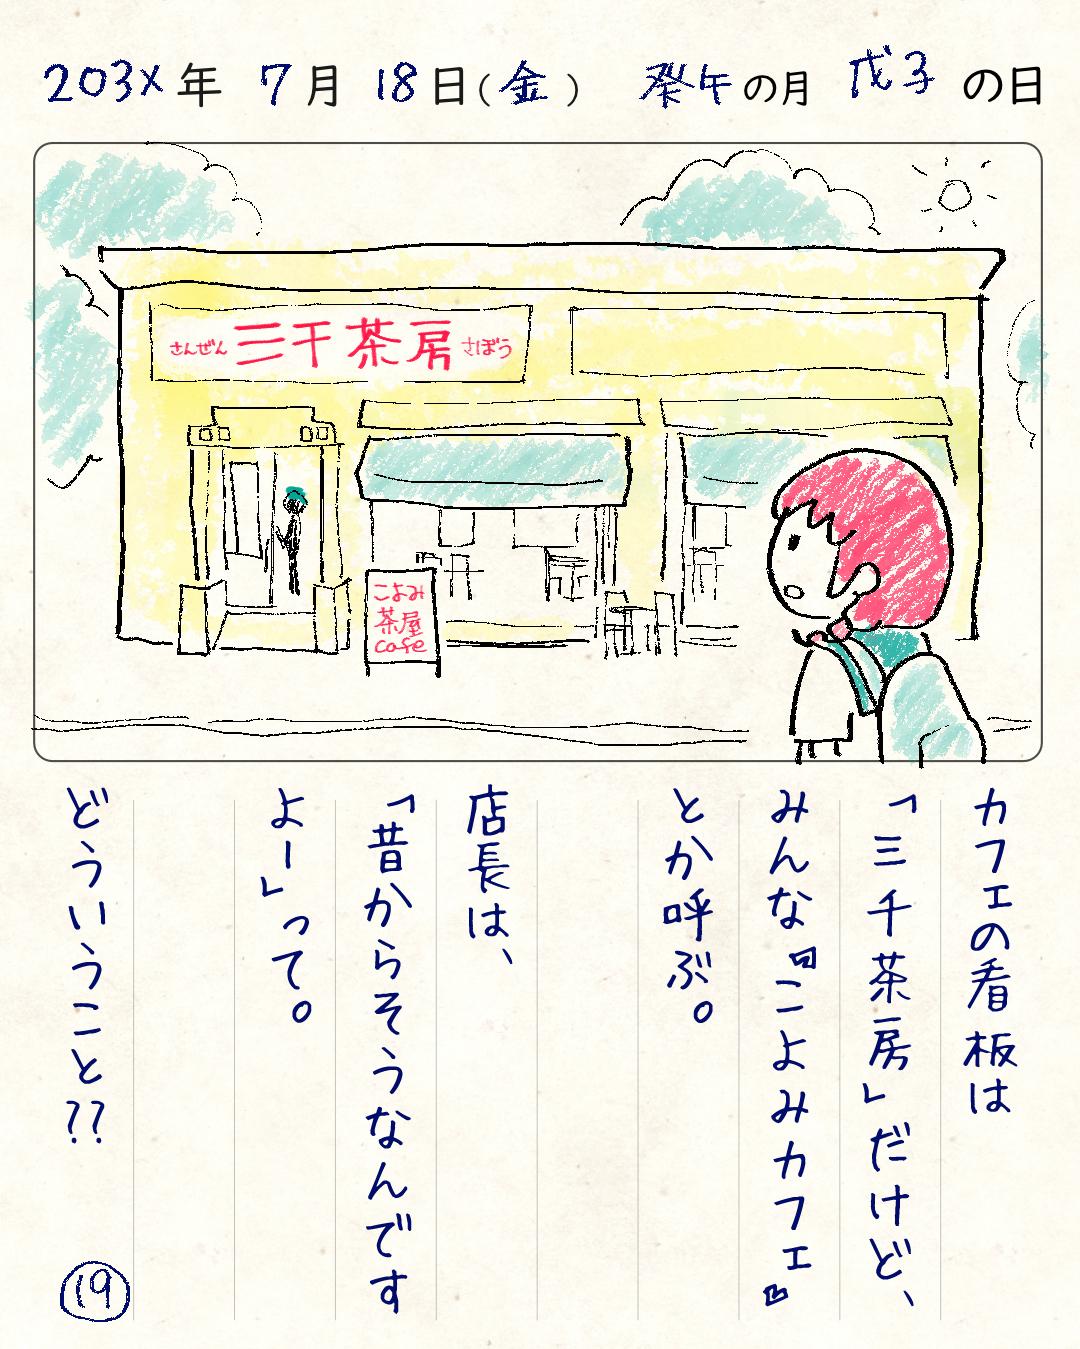 203X年 7月 18日(金) 癸午の月 戊子の日
さんぜん 三千茶房 さぼう
こよみ
茶屋
cafe
カフェの看板は
「三千茶房」だけど、
みんな『こよみカフェ』
とか呼ぶ。
店長は、
「昔からそうなんです
よー」って。
どういうこと??
19